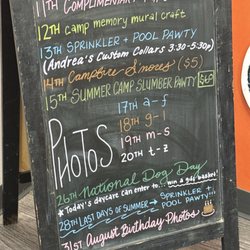 11TH COMPLIMENTARY
12TH camp memory mural craft
13TH SPRINKLER + POOL PAWTY
(Andrea's Custom Collars 3:30-5:30p)
14TH Campfire S'mores ($5)
15TH SUMMER CAMP SLUMBER PAWTY $60
PHOTOS
17TH a-f
18TH g-l
19TH m-s
20TH t-z
26TH National Dog Day
* Today's daycare can enter to... win a gift basket!
28TH LAST DAYS OF SUMMER → SPRINKLER +
POOL PAWTY...
31ST August Birthday Photos